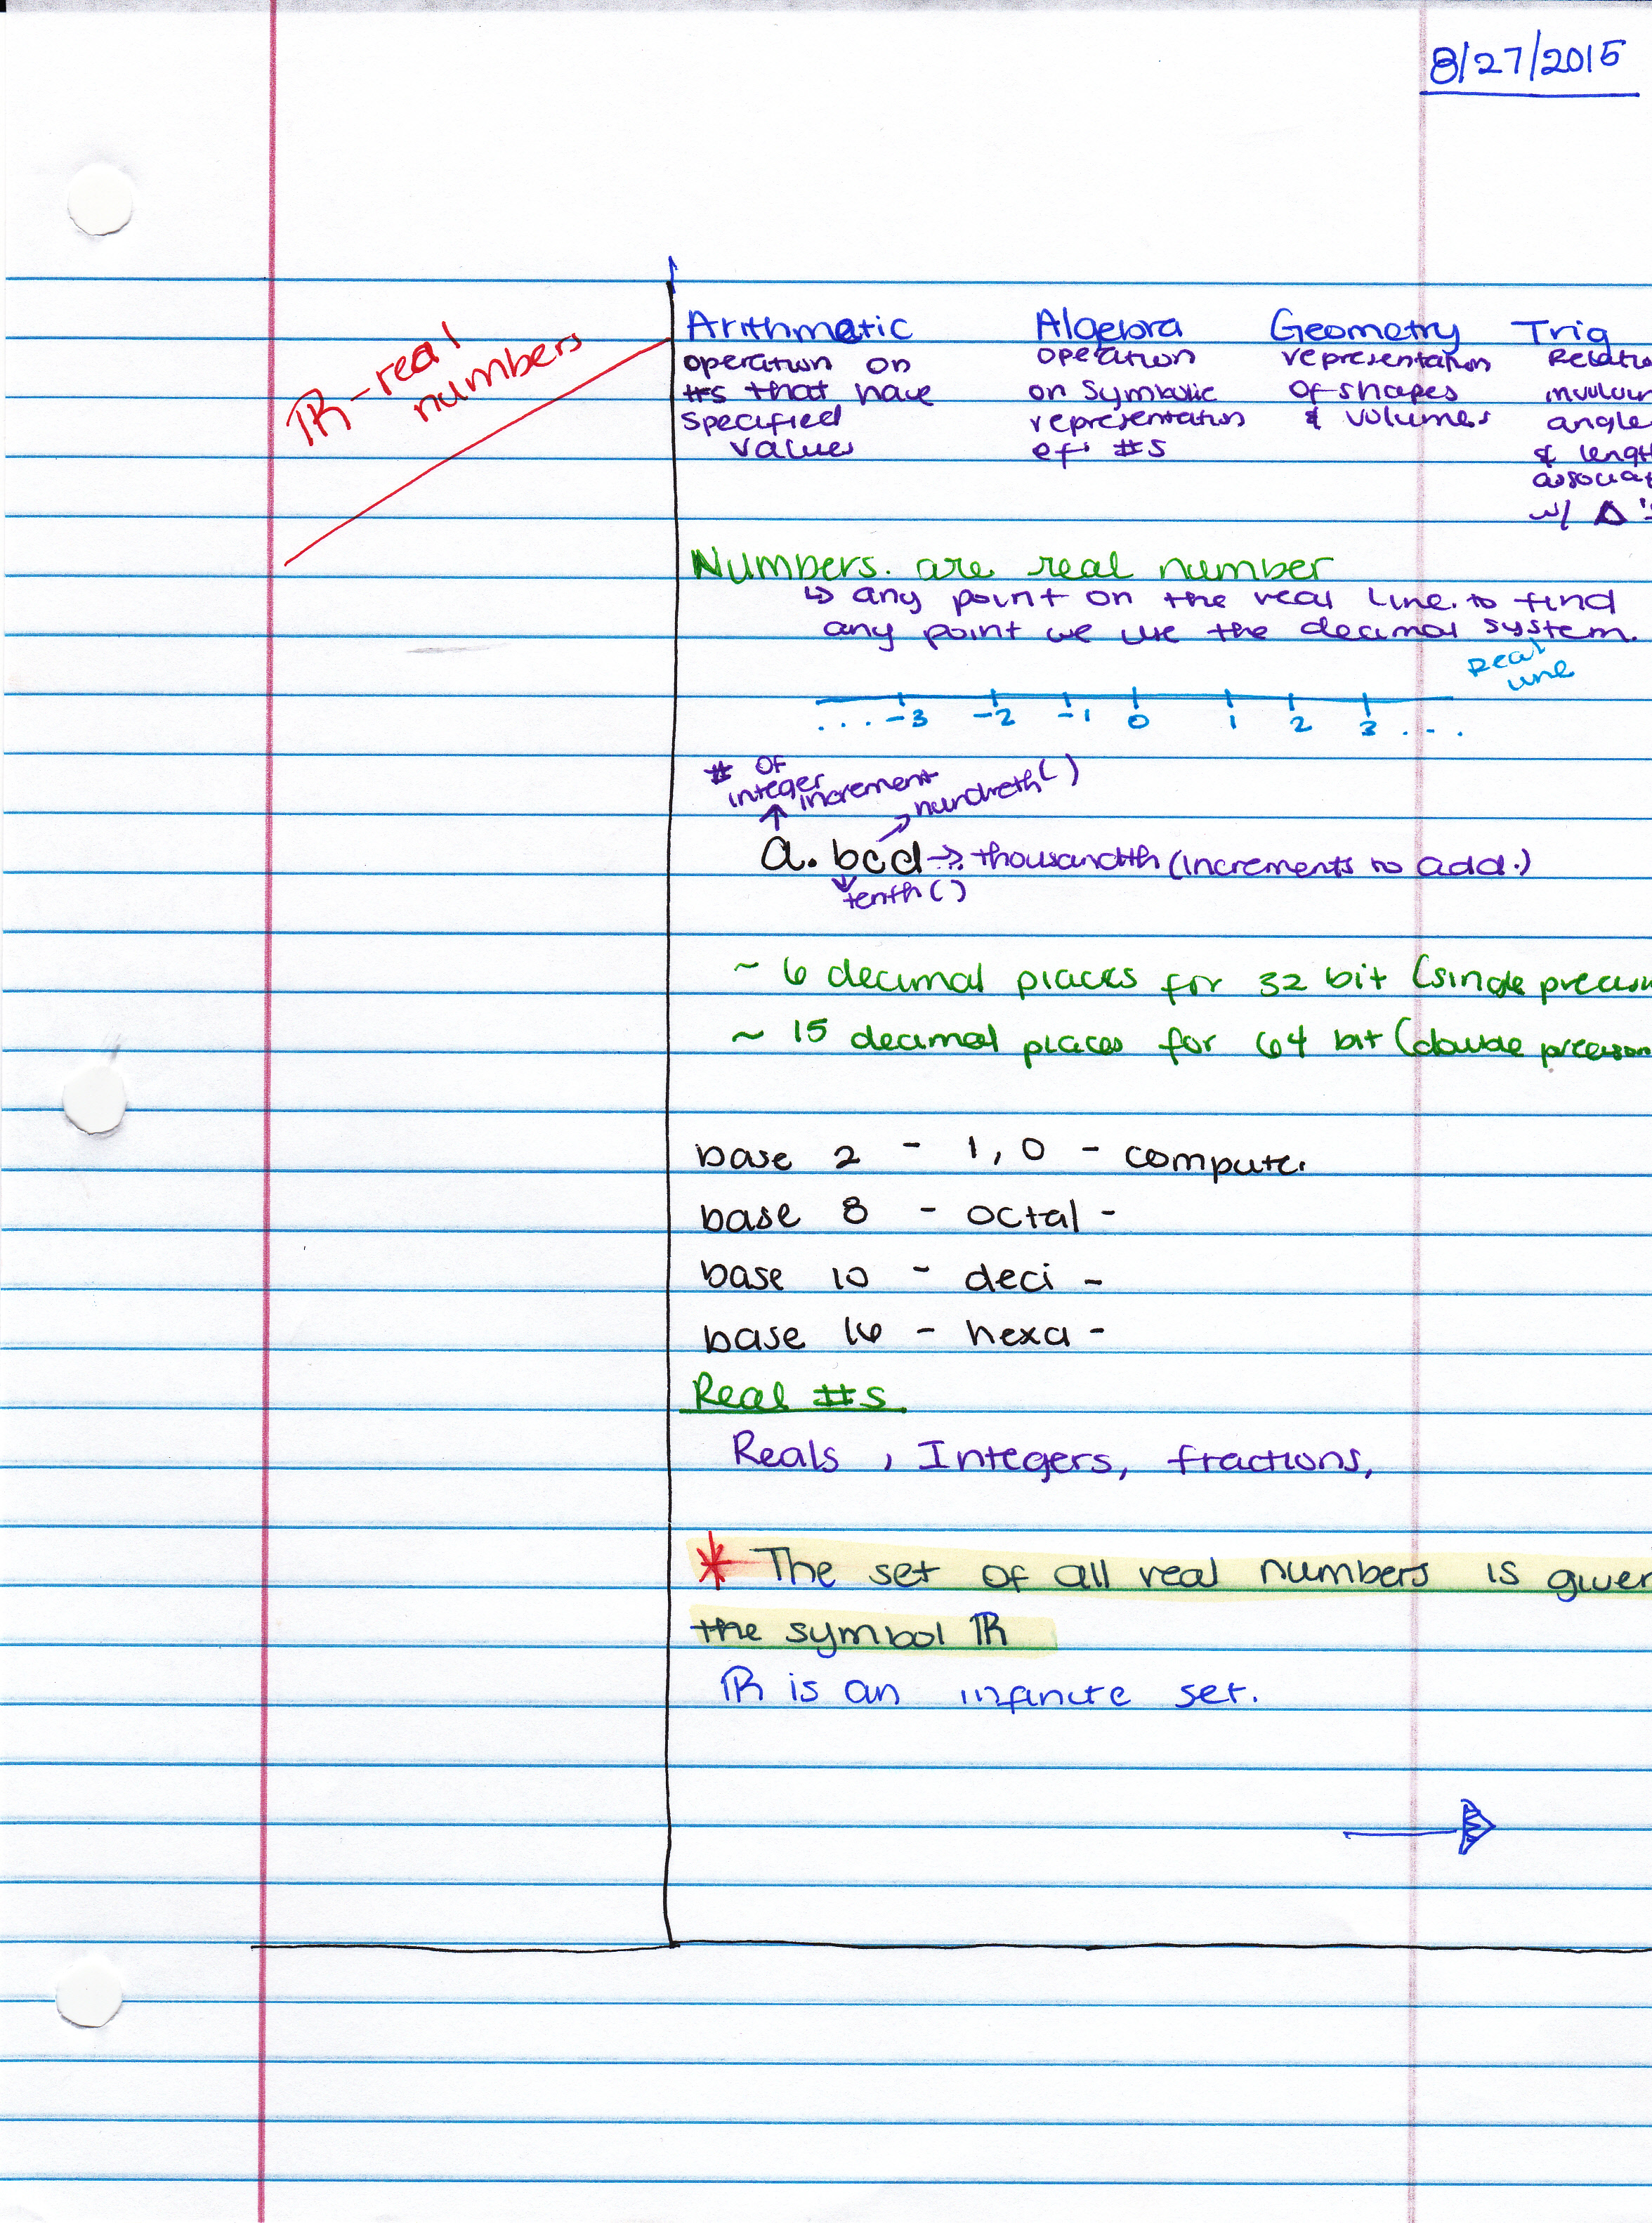 8/27/2015
ℝ - real
numbers
Arithmetic Algebra Geometry Trig
operation on operation representation Relatio
#s that have on symbolic of shapes involvin
specified representation & volumes angle
values of #s & lengt
associat
w/ Δ's
Numbers are real number
↳ any point on the real line. to find
any point we use the decimal system.
Real
line
... -3 -2 -1 0 1 2 3 ...
# of
integer increment hundreth( )
a.bcd → thousandth (increments to add.)
tenth ( )
~ 6 decimal places for 32 bit (single precision
~ 15 decimal places for 64 bit (double precision
base 2 - 1, 0 - computer
base 8 - octal -
base 10 - deci -
base 16 - hexa -
Real #s
Reals , Integers, fractions,
* The set of all real numbers is given
the symbol ℝ
ℝ is an infinite set.